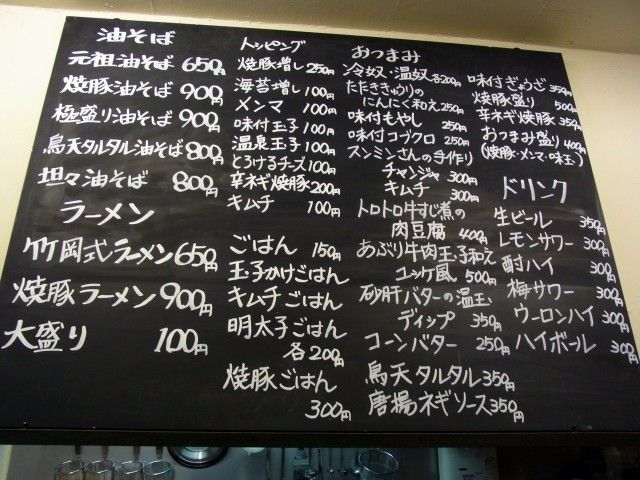 油そば
元祖油そば 650円
焼豚油そば 900円
極盛り油そば 900円
鳥天タルタル油そば 800円
坦々油そば 800円
ラーメン
竹岡式ラーメン 650円
焼豚ラーメン 900円
大盛り 100円
トッピング
焼豚増し 250円
海苔増し 100円
メンマ 100円
味付玉子 100円
温泉玉子 100円
とろけるチーズ 100円
辛ネギ焼豚 200円
キムチ 100円
ごはん 150円
玉子かけごはん
キムチごはん
明太子ごはん
各200円
焼豚ごはん
300円
おつまみ
冷奴・温奴 各200円
たたききゅうりの
にんにく和え 250円
味付もやし 250円
味付コヅクロ 250円
スンミンさんの手作り
チャンジャ 300円
キムチ 300円
トロトロ牛すじ煮の
肉豆腐 400円
あぶり牛肉玉子和え
ユッケ風 500円
砂肝バターの温玉
ディップ 350円
コーンバター 250円
鳥天タルタル 350円
唐揚ネギソース 350円
味付ぎょうざ 350円
焼豚盛り 500円
辛ネギ焼豚 350円
おつまみ盛り 400円
(焼豚・メンマ・味玉)
ドリンク
生ビール 350円
レモンサワー 300円
酎ハイ 300円
梅サワー 300円
ウーロンハイ 300円
ハイボール 300円